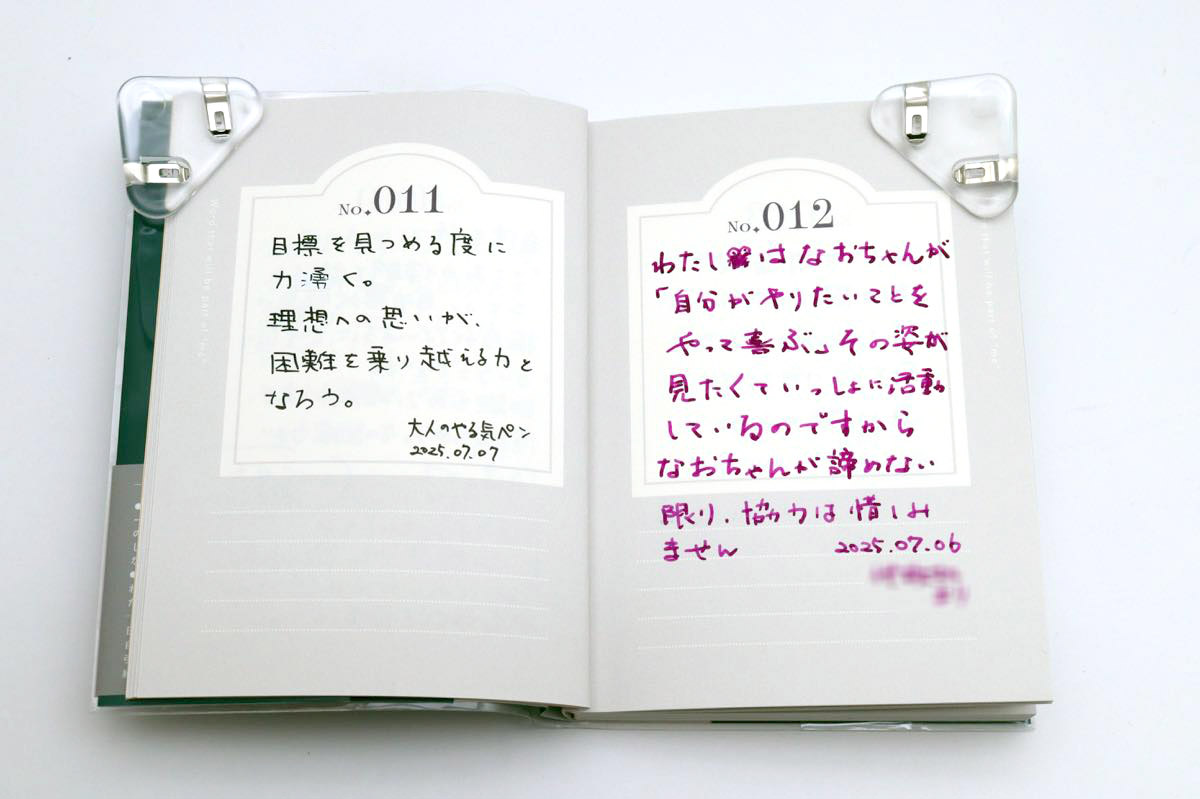 No.011
目標を見つめる度に
力湧く。
理想への思いが、
困難を乗り越える力と
なろう。
大人のやる気ペン
2025.07.07
No.012
わたしはなおちゃんが
「自分がやりたいことを
やって喜ぶ」その姿が
見たくていっしょに活動
しているのですから
なおちゃんが諦めない
限り、協力は惜しみ
ません
2025.07.06